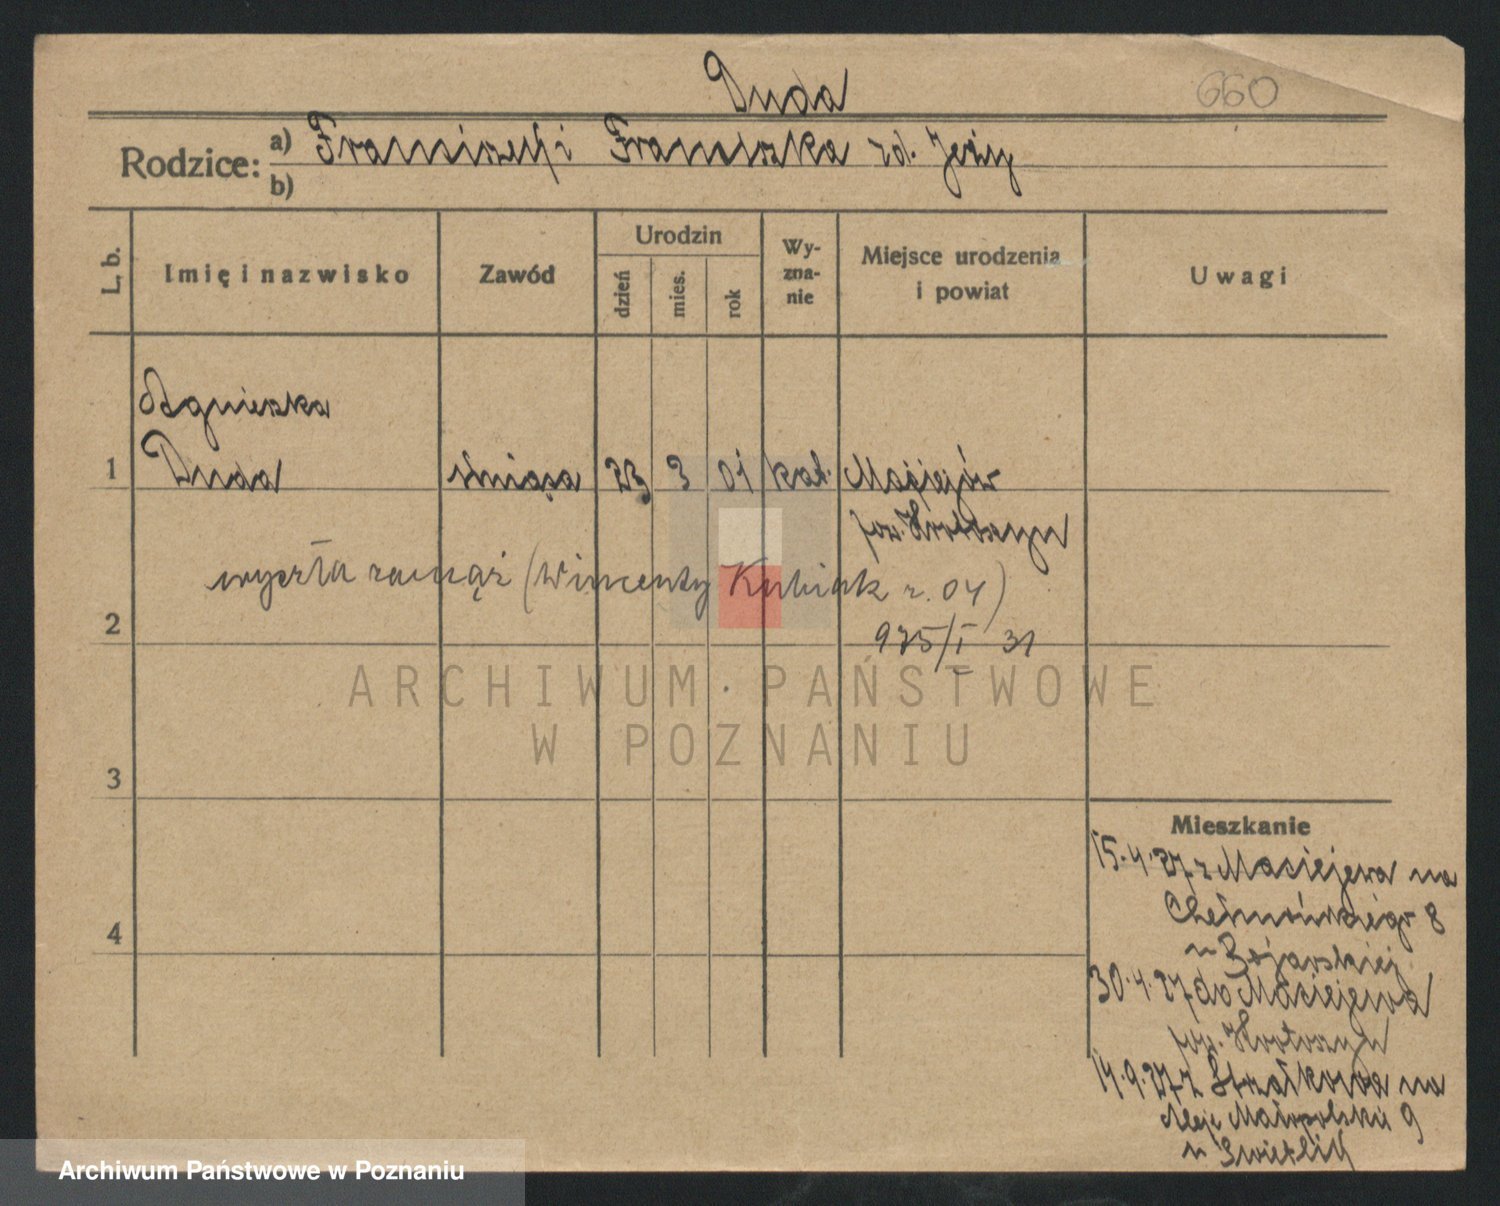 Duda
660
Rodzice: a) Franciszek i Franciszka zd. Jeży
b)
L. b.
Imię i nazwisko
Zawód
Urodzin
dzień
mies.
rok
Wy-
zna-
nie
Miejsce urodzenia
i powiat
Uwagi
Agnieszka
1 Duda służąca 23 3 01 kat. Maciejów
pow. Krotoszyn
wyszła zamąż (Wincenty Kubiak r. 04)
2
975/I 31
ARCHIWUM PAŃSTWOWE
W POZNANIU
3
Mieszkanie
15.4.27 z Maciejewa na
Chełmońskiego 8
4
u
30.4.27 do Maciejewa
pow. Krotoszyn
14.9.27 z Strzałkowa na
Aleje Małopolskie 9
u
Archiwum Państwowe w Poznaniu